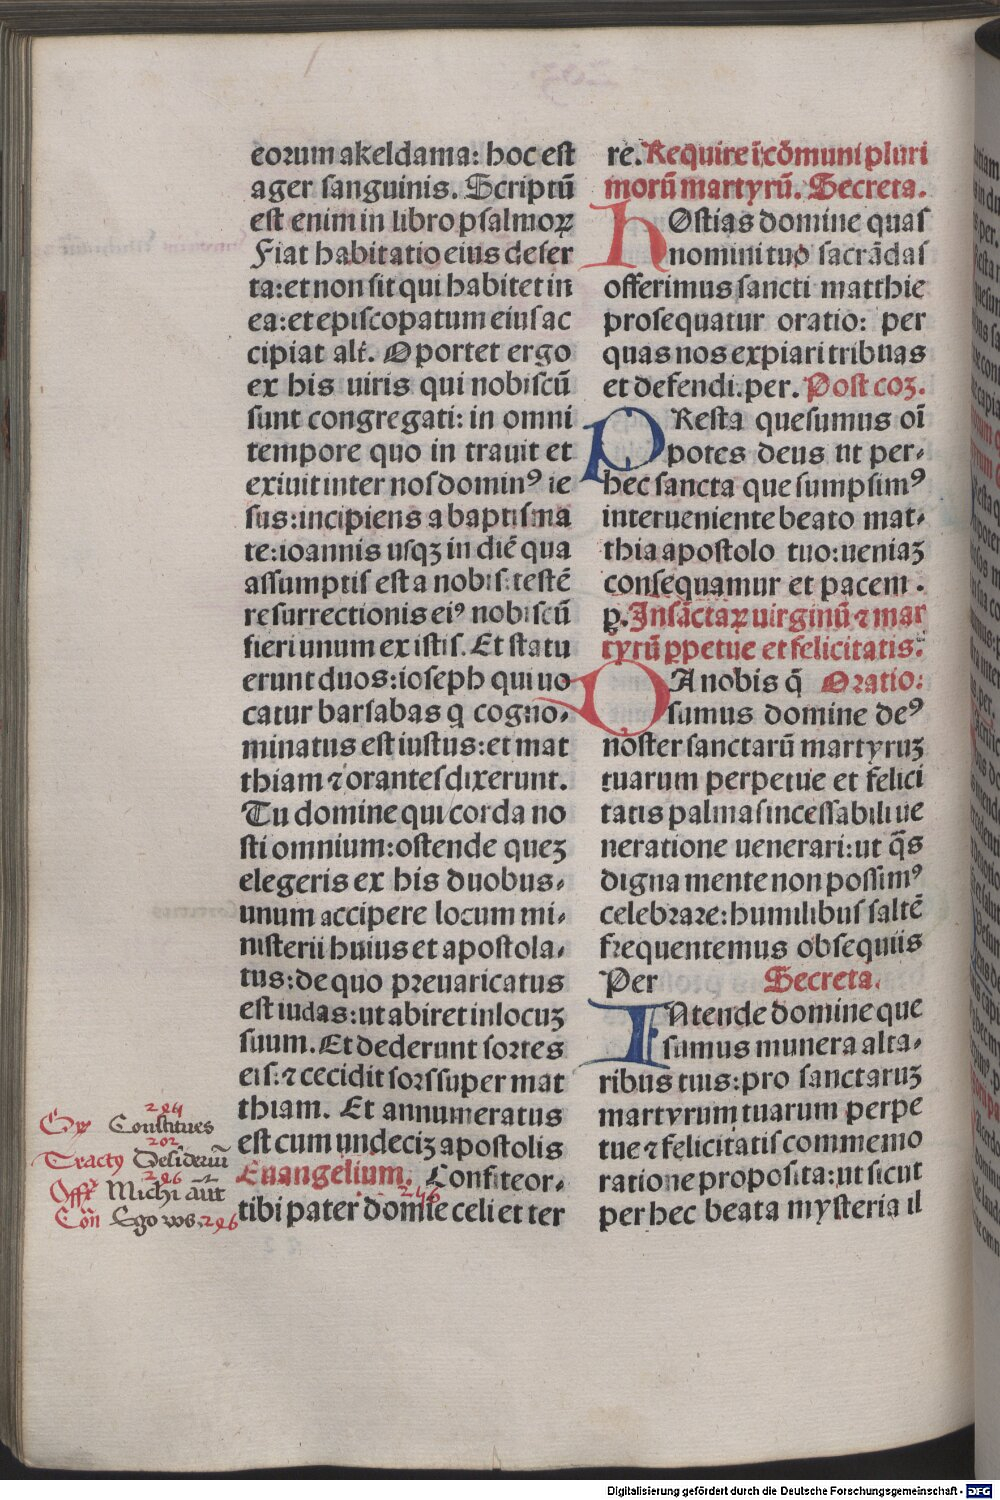 eorum akeldama: hoc est
ager sanguinis. Scriptū
est enim in libro psalmoꝝ
Fiat habitatio eius deser
ta: et non sit qui habitet in
ea: et episcopatum eius ac
cipiat alt̄. Oportet ergo
ex his uiris qui nobiscū
sunt congregati: in omni
tempore quo in trauit et
exiuit inter nos dominꝰ ie
sus: incipiens a baptisma
te: ioannis usqꝫ in diē qua
assumptis est a nobis: testē
resurrectionis eiꝰ nobiscū
fieri unum ex istis. Et statu
erunt duos: ioseph qui uo
catur barsabas q cogno⸗
minatus est iustus: et mat
thiam ⁊ orantes dixerunt.
Tu domine qui corda no
sti omnium: ostende queꝫ
elegeris ex his duobus⸗
unum accipere locum mi⸗
nisterii huius et apostola⸗
tus: de quo preuaricatus
est iudas: ut abiret in locuꝫ
suum. Et dederunt sortes
eis: ⁊ cecidit sors super mat
thiam. Et annumeratus
est cum undeciꝫ apostolis
Euangelium. Confiteor⸗
246
tibi pater domine celi et ter
294
Constitues
202
Tractꝰ Desideriū
296
Offr̄ Michi aūt
Cōn Ego vos 296
re. Require ī cōmuni pluri
morū martyrū. Secreta.
HOstias domine quas
nomini tuo sacrādas
offerimus sancti matthie
prosequatur oratio: per
quas nos expiari tribuas
et defendi. per. Post coꝫ.
PResta quesumus oī
potes deus ut per⸗
hec sancta que sumpsimꝰ
interueniente beato mat⸗
thia apostolo tuo: ueniaꝫ
consequamur et pacem.
ꝑ. In sāctaꝝ uirginū ⁊ mar
tyrū ꝑpetue et felicitatis.
DA nobis q̄ Oratio:
sumus domine deꝰ
noster sanctarū martyruꝫ
tuarum perpetue et felici
tatis palmas incessabili ue
neratione uenerari: ut q̄s
digna mente non possimꝰ
celebrare: humilibus saltē
frequentemus obsequiis
Per Secreta.
INtende domine que
sumus munera alta⸗
ribus tuis: pro sanctaruꝫ
martyrum tuarum perpe
tue ⁊ felicitatis commemo
ratione proposita: ut sicut
per hec beata mysteria il
Digitalisierung gefördert durch die Deutsche Forschungsgemeinschaft - DFG